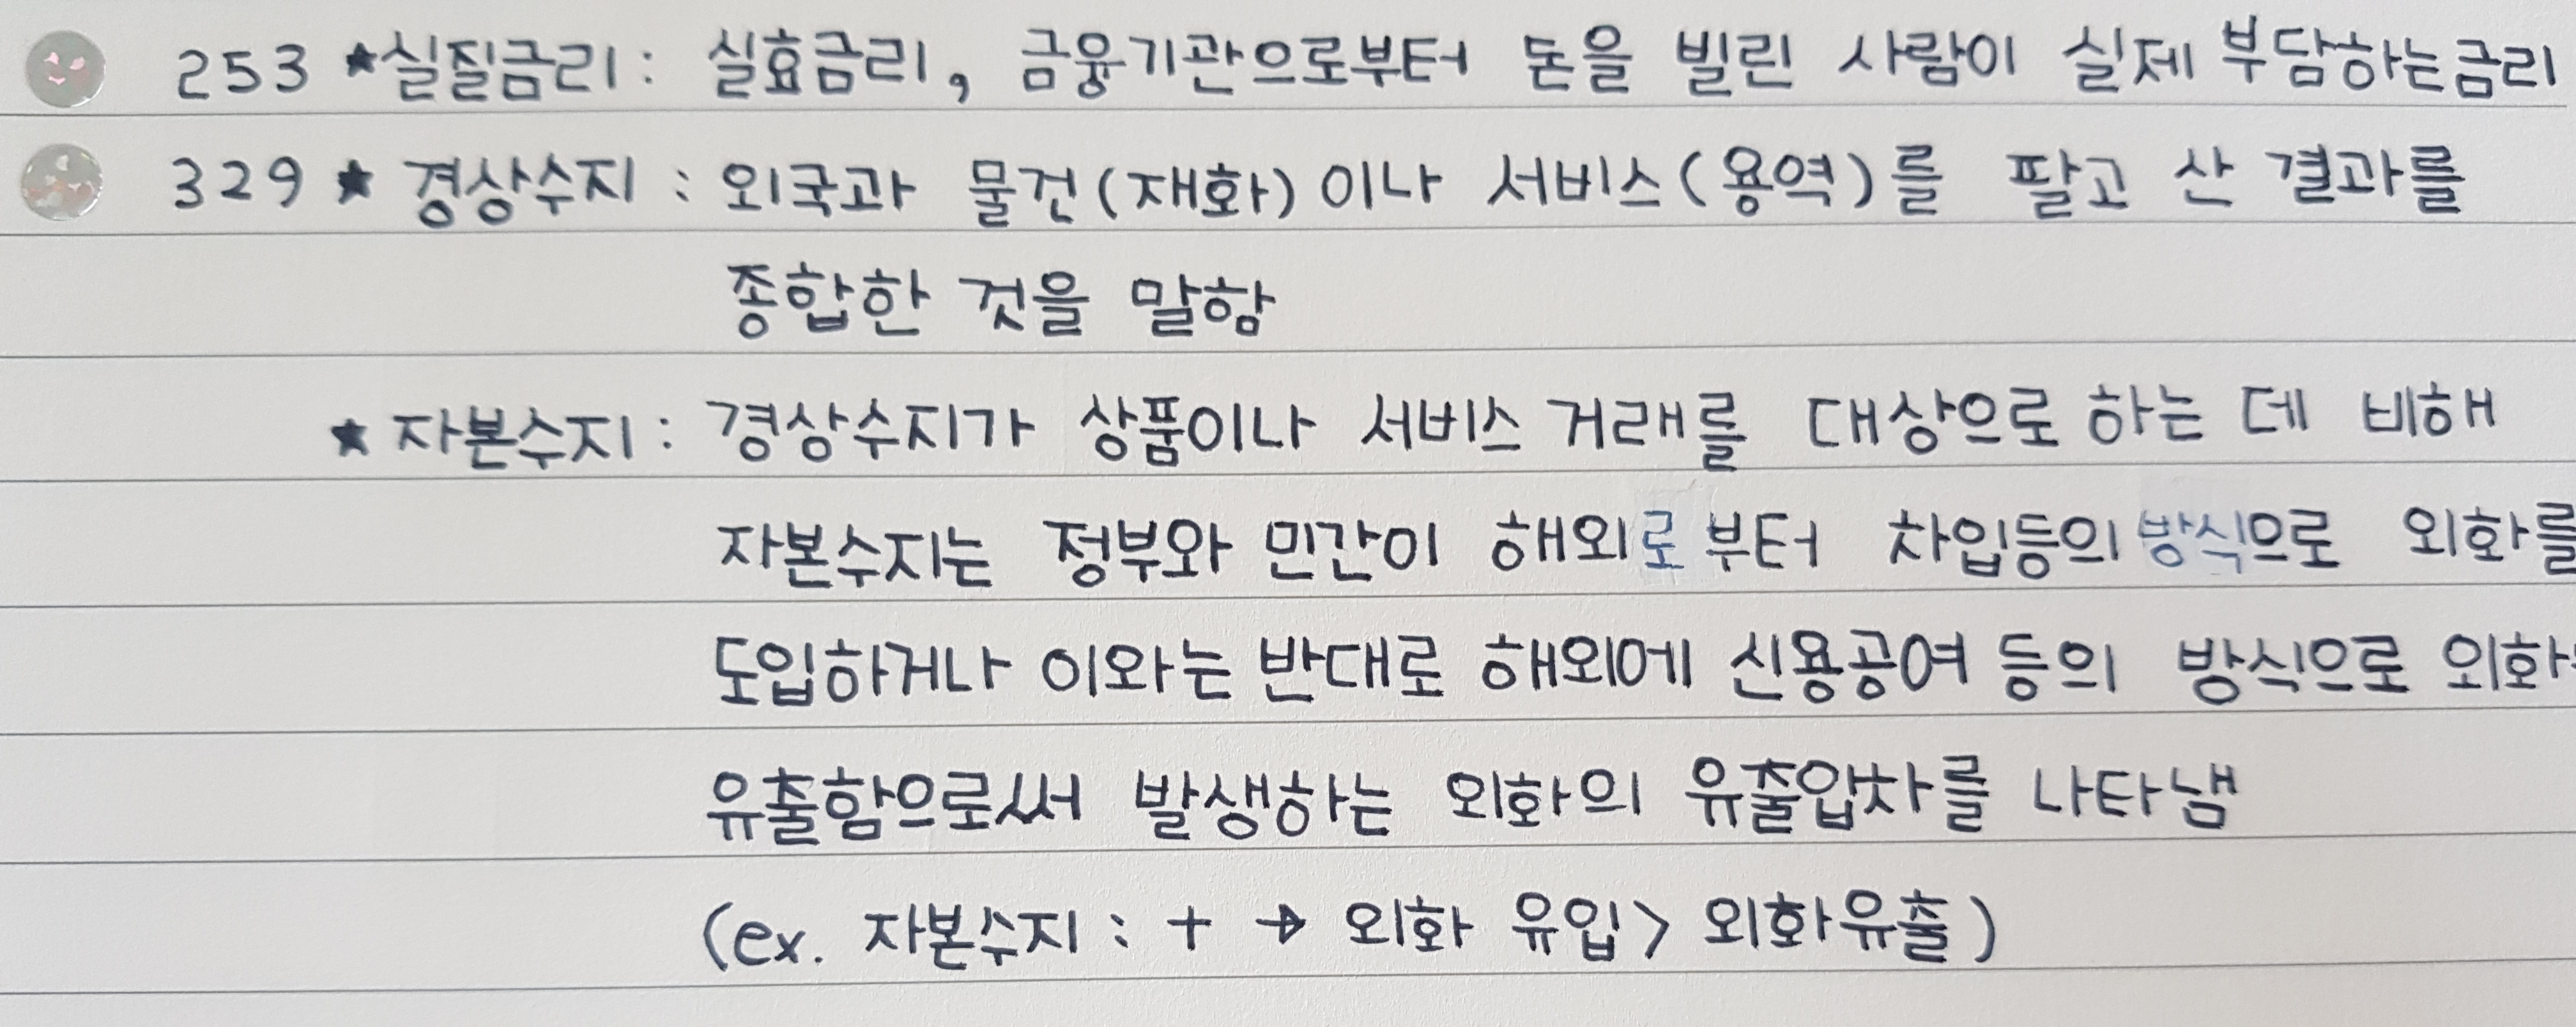 253 ★실질금리: 실효금리, 금융기관으로부터 돈을 빌린 사람이 실제 부담하는금리
329 ★ 경상수지 : 외국과 물건(재화)이나 서비스(용역)를 팔고 산 결과를
종합한 것을 말함
★ 자본수지: 경상수지가 상품이나 서비스 거래를 대상으로 하는 데 비해
자본수지는 정부와 민간이 해외로부터 차입등의 방식으로 외화를
도입하거나 이와는 반대로 해외에 신용공여 등의 방식으로 외화
유출함으로써 발생하는 외화의 유출입차를 나타냄
(ex. 자본수지 : + → 외화 유입> 외화유출)